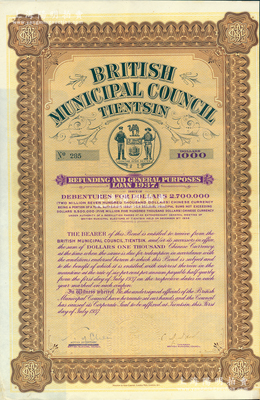 BRITISH
MUNICIPAL COUNCIL
TIENTSIN
No 265
1000
REFUNDING AND GENERAL PURPOSES
LOAN 1937.
DEBENTURES FOR DOLLARS 2,700,000
TWO MILLION SEVEN HUNDRED THOUSAND DOLLARS CHINESE CURRENCY
THE BEARER of this Bond is entitled to receive from the
BRITISH MUNICIPAL COUNCIL, TIENTSIN, and its successors in office,
the sum of DOLLARS ONE THOUSAND Chinese Currency
at the time when the same is due for redemption in accordance with
the conditions endorsed hereon to which this Bond is subject and
to the benefit of which it is entitled with interest thereon in the
meantime at the rate of six per cent per annum payable half-yearly
from the first day of July 1937 on the respective dates in each
year marked on each coupon.
In Witness whereof We the undersigned officials of the British
Municipal Council have hereunto set our hands, and the Council
has caused its Corporate Seal to be affixed at Tientsin, this First
day of July 1937